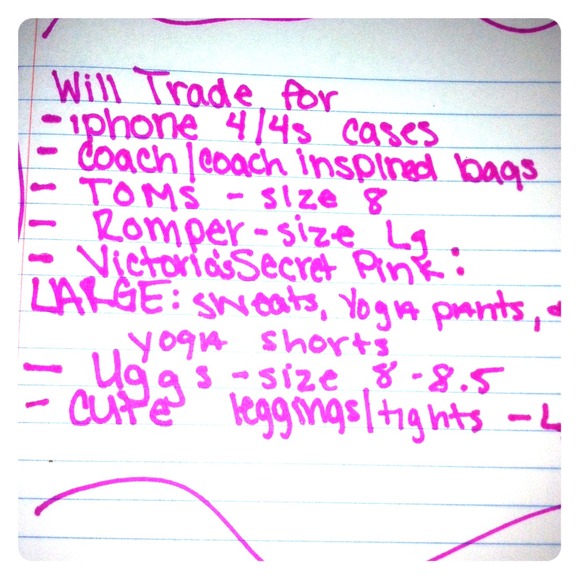 Will Trade for
- iphone 4/4s cases
- coach/coach inspired bags
- TOMS - size 8
- Romper - size Lg
- Victoria's Secret Pink:
LARGE: sweats, Yoga pants,
yoga shorts
- Uggs - size 8 - 8.5
- cute leggings/tights - L